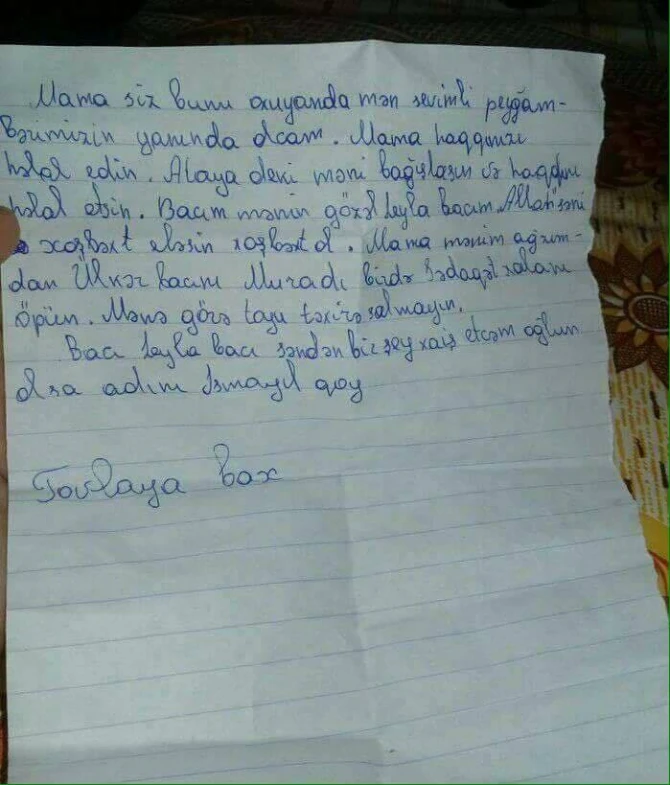 Mama siz bunu oxuyanda mən sevimli peyğəm-
bərimizin yanında olcam. Mama haqqınızı
halal edin. Ataya deki məni bağışlasın və haqqını
halal etsin. Bacım mənim gözəl Leyla bacım Allah səni
xoşbəxt eləsin xoşbəxt ol. Mama mənim ağzım-
dan Ülkər bacımı Muradı birdə Sədaqət xalanı
Öpün. Mənə görə toyu təxirə salmayın.
Bacı Leyla bacı səndən bir şey xaiş etcəm oğlun
olsa adını İsmayıl qoy
Tovlaya bax